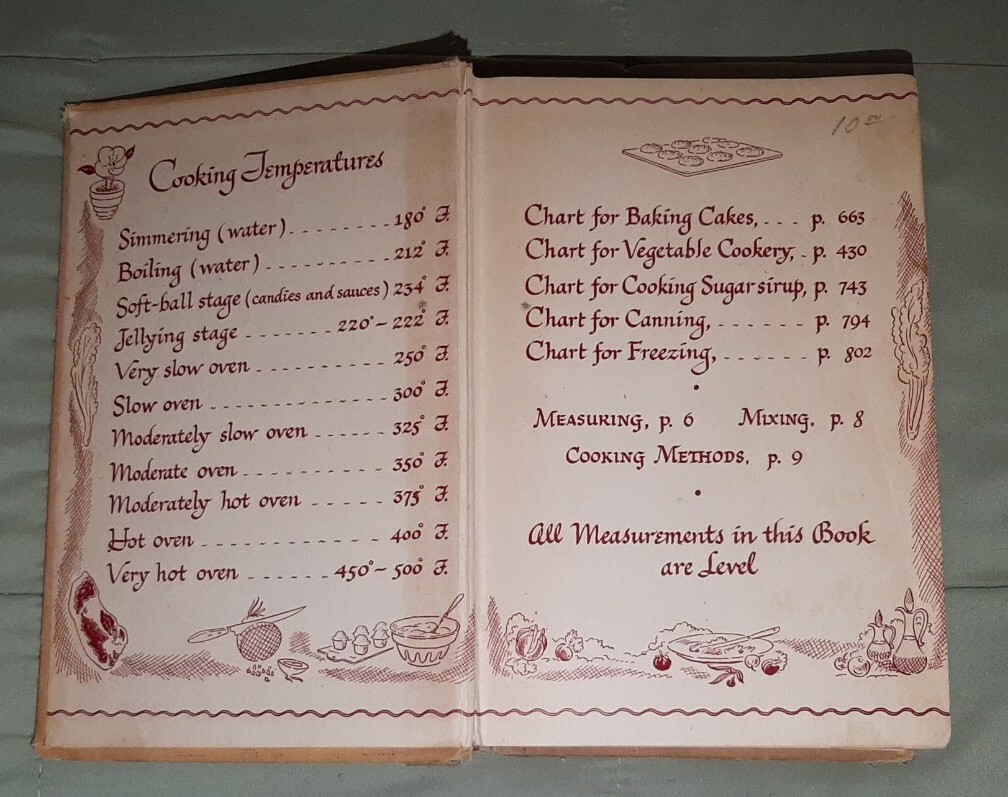 Cooking Temperatures
Simmering (water) - - - - - - - - 180° F.
Boiling (water) - - - - - - - - - - 212° F.
Soft-ball stage (candies and sauces) 234° F.
Jellying stage - - - - - - - 220°-222° F.
Very slow oven - - - - - - - - - - 250° F.
Slow oven - - - - - - - - - - - - - - 300° F.
Moderately slow oven - - - - - - 325° F.
Moderate oven - - - - - - - - - - - 350° F.
Moderately hot oven - - - - - - 375° F.
Hot oven - - - - - - - - - - - - - - 400° F.
Very hot oven - - - - - - 450°-500° F.
10 00
Chart for Baking Cakes, - - - p. 663
Chart for Vegetable Cookery, - p. 430
Chart for Cooking Sugarsirup, p. 743
Chart for Canning, - - - - - - p. 794
Chart for Freezing, - - - - - - p. 802
Measuring, p. 6 Mixing, p. 8
Cooking Methods, p. 9
All Measurements in this Book
are Level